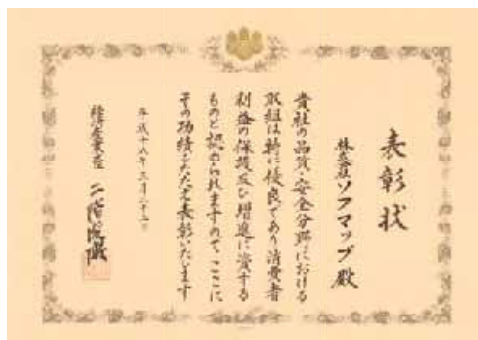 表彰状
株式会社ソフマップ殿
貴社の品質・安全分野における
取組は特に優良であり消費者
利益の保護及び増進に資する
ものと認められますので、ここに
その功績をたたえ表彰いたします
平成十八年三月二十二日
経済産業大臣 二階俊博